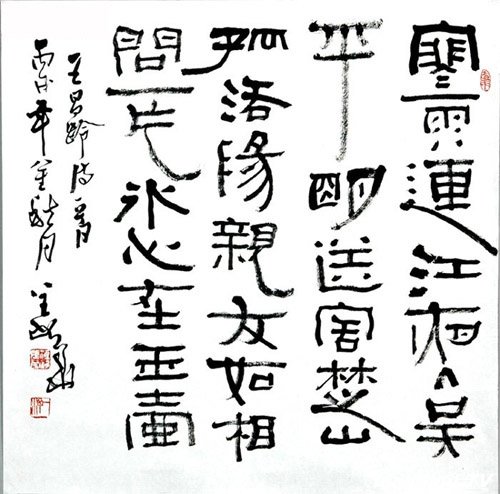 寒雨連江夜入吳
平明送客楚山
孤洛陽親友如相
問一片氷心在玉壺
王昌齡詩一首
丙申年金秋月